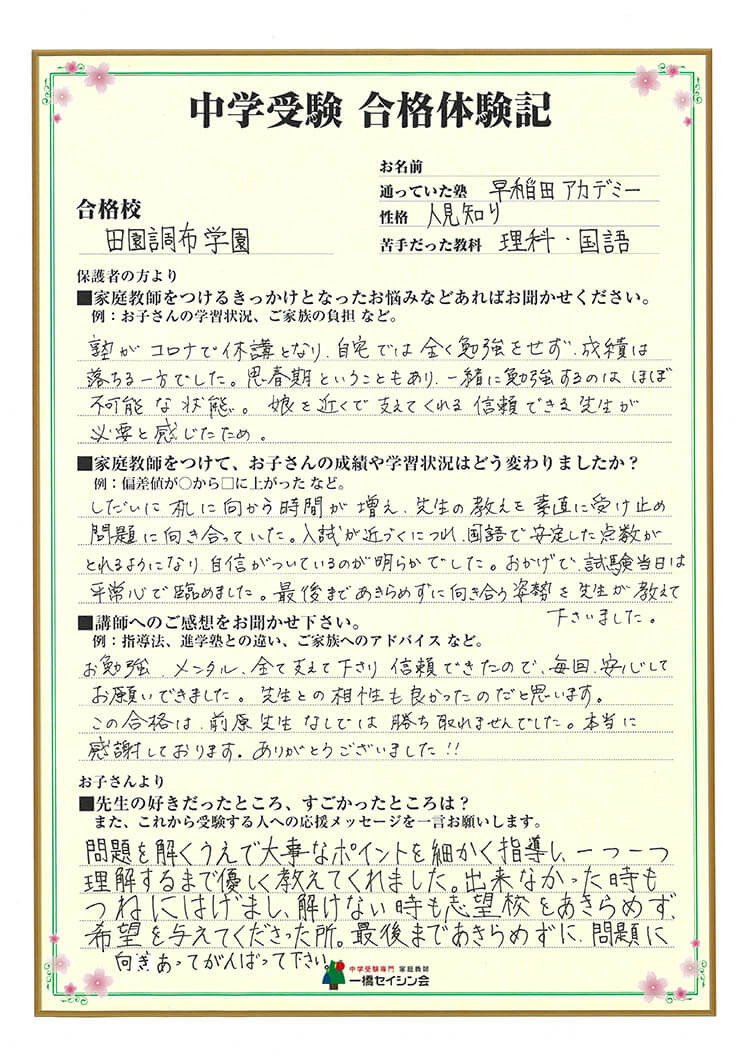 中学受験 合格体験記
お名前
通っていた塾 早稲田アカデミー
合格校
性格 人見知り
田園調布学園
苦手だった教科 理科・国語
保護者の方より
■家庭教師をつけるきっかけとなったお悩みなどあればお聞かせください。
例：お子さんの学習状況、ご家族の負担 など。
塾がコロナで休講となり、自宅では全く勉強をせず、成績は
落ちる一方でした。思春期ということもあり、一緒に勉強するのはほぼ
不可能な状態。娘を近くで支えてくれる信頼できる先生が
必要と感じたため。
■家庭教師をつけて、お子さんの成績や学習状況はどう変わりましたか？
例：偏差値が○から□に上がった など。
しだいに机に向かう時間が増え、先生の教えを素直に受け止め
問題に向き合っていた。入試が近づくにつれ、国語で安定した点数が
とれるようになり、自信がついているのが明らかでした。おかげで、試験当日は
平常心で臨めました。最後まであきらめずに向き合う姿勢を先生が教えて
下さいました。
■講師へのご感想をお聞かせ下さい。
例：指導法、進学塾との違い、ご家族へのアドバイス など。
お勉強、メンタル、全て支えて下さり信頼できたので、毎回、安心して
お願いできました。先生との相性も良かったのだと思います。
この合格は、前原先生なしでは勝ち取れませんでした。本当に
感謝しております。ありがとうございました!!
お子さんより
■先生の好きだったところ、すごかったところは？
また、これから受験する人への応援メッセージを一言お願いします。
問題を解くうえで大事なポイントを細かく指導し、一つ一つ
理解するまで優しく教えてくれました。出来なかった時も
つねにはげまし、解けない時も志望校をあきらめず、
希望を与えてくださった所。最後まであきらめずに、問題に
向きあってがんばって下さい。
中学受験専門 家庭教師
一橋セイシン会